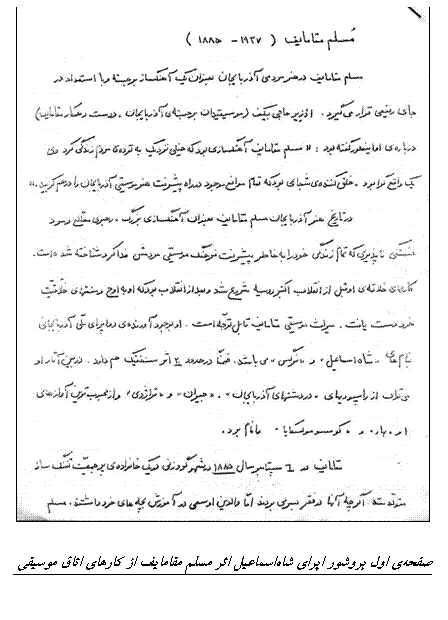 مُسلم مقامایف ( ۱۹۳۷ - ۱۸۸۵ )
مسلم مقامایف در هنر سرودی آذربایجان بعنوان یک آهنگساز برجسته و با استعداد در
جای رفیعی قرار می‌گیرد . اوزیر حاجی بیکف ( موسیقیدان برجسته‌ی آذربایجان - دوست و همکار مقامایف )
درباره‌ی او اینطور گفته بود : « مسلم مقامایف آهنگسازی بود که خیلی نزدیک به توده‌ی مردم زندگی کرد وی
یک واقع‌گرا بود . خلق کننده‌ی شجاعی بود که تمام موانع موجود در راه پیشرفت هنر موسیقی آذربایجان را درهم کوبید . »
در تاریخ هنر آذربایجان مسلم مقامایف بعنوان آهنگسازی بزرگ ، رهبری مطلع و مرد
خستگی ناپذیری که تمام زندگی خود را به خاطر پیشرفت فرهنگ موسیقی مردمش فدا کرد شناخته شده است .
کارهای خلاقه‌ی او قبل از انقلاب اکتبر روسیه شروع شد و بعد از انقلاب بود که او به اوج خلاقیت
خود دست یافت . میراث موسیقی مقامایف قابل توجه است . او بوجود آورنده‌ی دو اپرای ملی آذربایجانی
بنام‌های « شاه اسماعیل » و « نرگس » می‌باشد . ضمناً در حدود ۲۰ اثر سنفنیک هم دارد . در بین آثار او
می‌توان از راپسودیهای « در دشتهای آذربایجان » ، « جیران » و « تراژدی » و از محبوب ترین آوازهای
او « بهار » و « کومسومولسکایا » را نام برد .
مقامایف در ٦ سپتامبر سال ۱۸۸۵ در شهر گروزنی در یک خانواده‌ی پر جمعیت تفنگ ساز
متولد شد . اگر چه آنها در فقر بسر می‌بردند امّا والدین او سعی در آموزش بچه‌های خود داشتند . مسلم
صفحه‌ی اول بروشور اپرای شاه‌اسماعیل اثر مسلم مقامایف از کارهای اتاق موسیقی